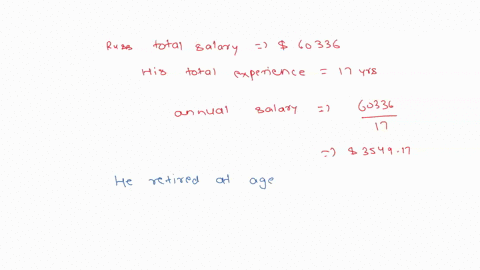 Russ total salary => $ 60336
His total experience = 17 yrs
annual salary => 60336
17
=> $ 3549.17
He retired at age